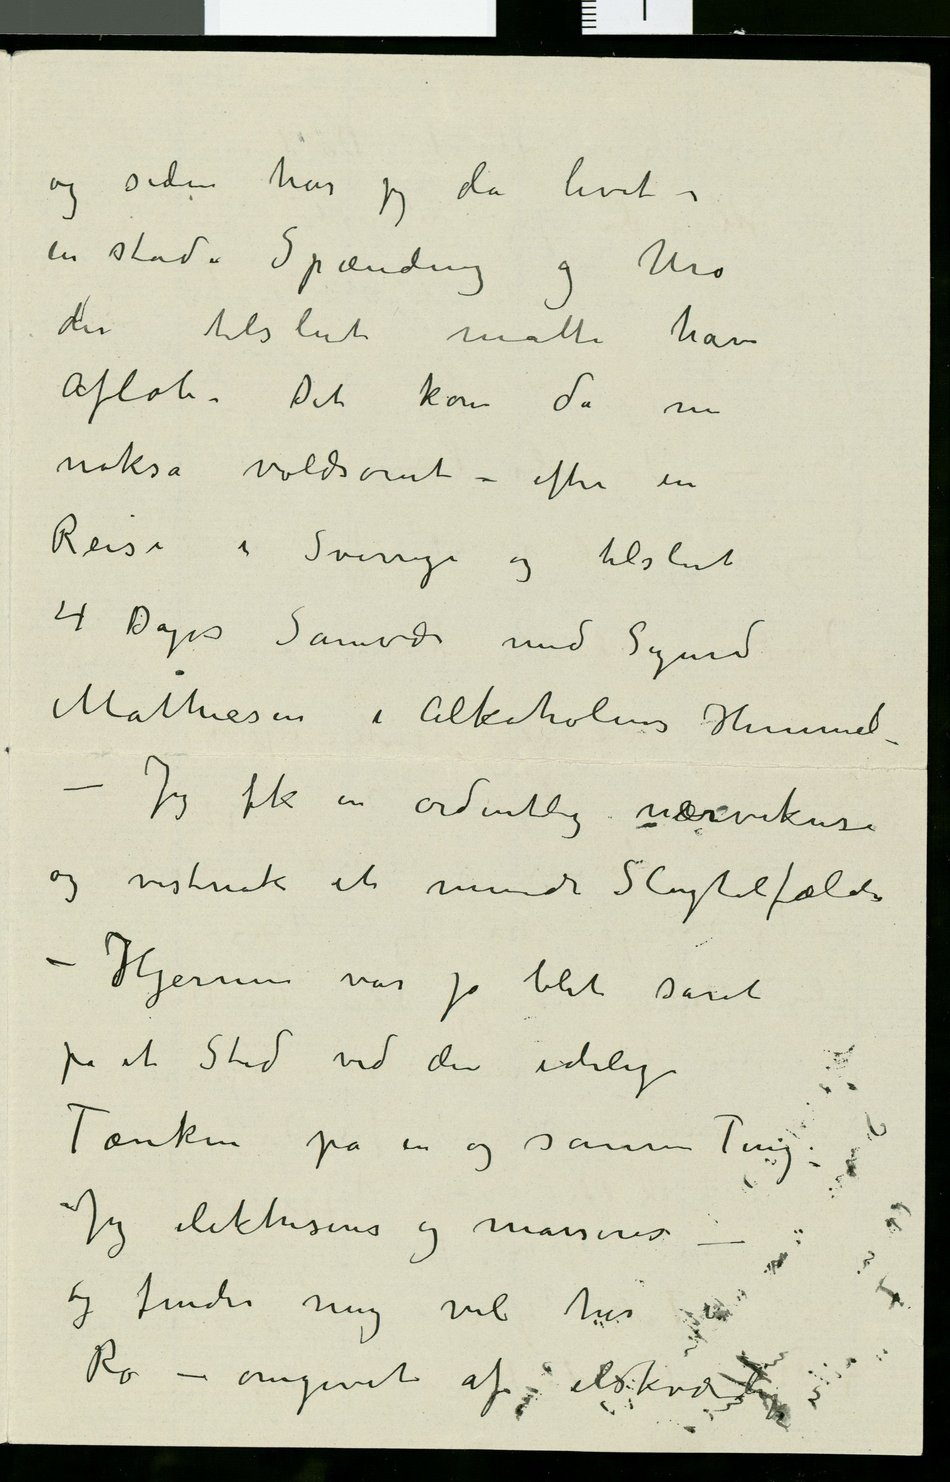 og siden har jeg da levet i
en stadi Spænding og Uro
der tilslut måtte have
Afløb. Det kom da nu
nokså voldsomt – efter en
Reise i Sverige og tilslut
4 Dages Samvær med Sigurd
Mathiesen i Alkoholens Himmel –
– Jeg fik en ordentlig nærvekrise
og vistnok et mindre Slagtilfælde
– Hjernen var jo blet såret
på et Sted ved den idelige
Tænken på en og samme Ting.
Jeg elektriseres og masseres –
og finder mig vel her
Ro – omgivet af elskværdige